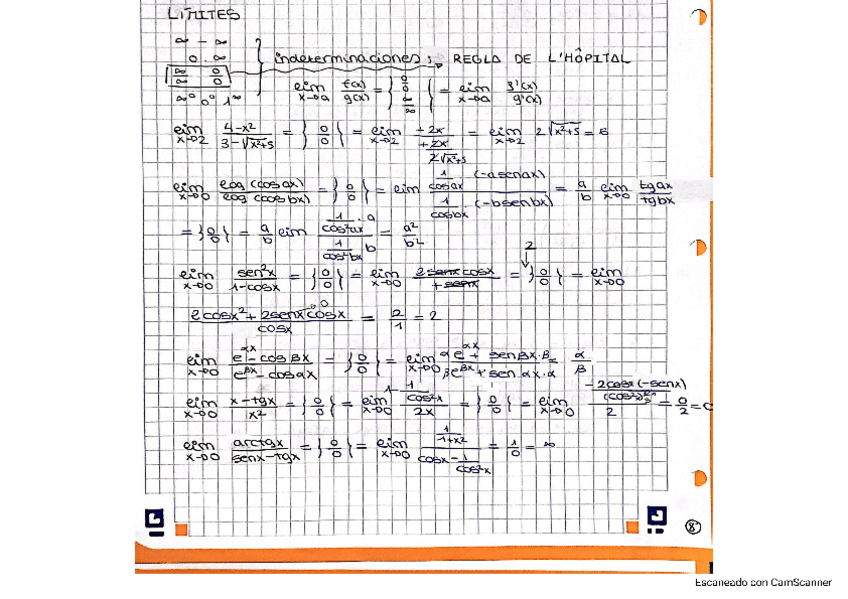 LÍMITES
∞ - ∞
0 · ∞
∞/∞ 0/0 } indeterminaciones: REGLA DE L'HÔPITAL
∞⁰ 0⁰ 1^∞
lim x→a f(x)/g(x) = {0/0 ∞/∞} = lim x→a f'(x)/g'(x)
lim x→2 (4-x²)/(3-√(x²+5)) = {0/0} = lim x→2 (+2x)/(+2x/(2√(x²+5))) = lim x→2 2√(x²+5) = 6
lim x→0 log(cosax)/log(cosbx) = {0/0} = lim (1/cosax · (-asenax))/(1/cosbx · (-bsenbx)) = a/b lim x→0 tgax/tgbx
= {0/0} = a/b lim (1/cos²ax · a)/(1/cos²bx b) = a²/b²
lim x→0 sen²x/(1-cosx) = {0/0} = lim x→0 2senxcosx/+senx = {0/0} = lim x→0
2
(2cosx² + 2senxcosx)/cosx = 2/1 = 2
0
lim x→0 (e^αx - cosβx)/(e^βx - cosαx) = {0/0} = lim x→0 (αe^αx + senβx·β)/(βe^βx + senαx·α) = α/β
lim x→0 (x-tgx)/x² = {0/0} = lim x→0 (1 - 1/cos²x)/2x = {0/0} = lim x→0 (-2cosx(-senx)/(cos²x)²)/2 = 0/2 = 0
lim x→0 arctgx/(senx-tgx) = {0/0} = lim x→0 (1/(1+x²))/(cosx - 1/cos²x) = 1/0 = ∞
8
Escaneado con CamScanner